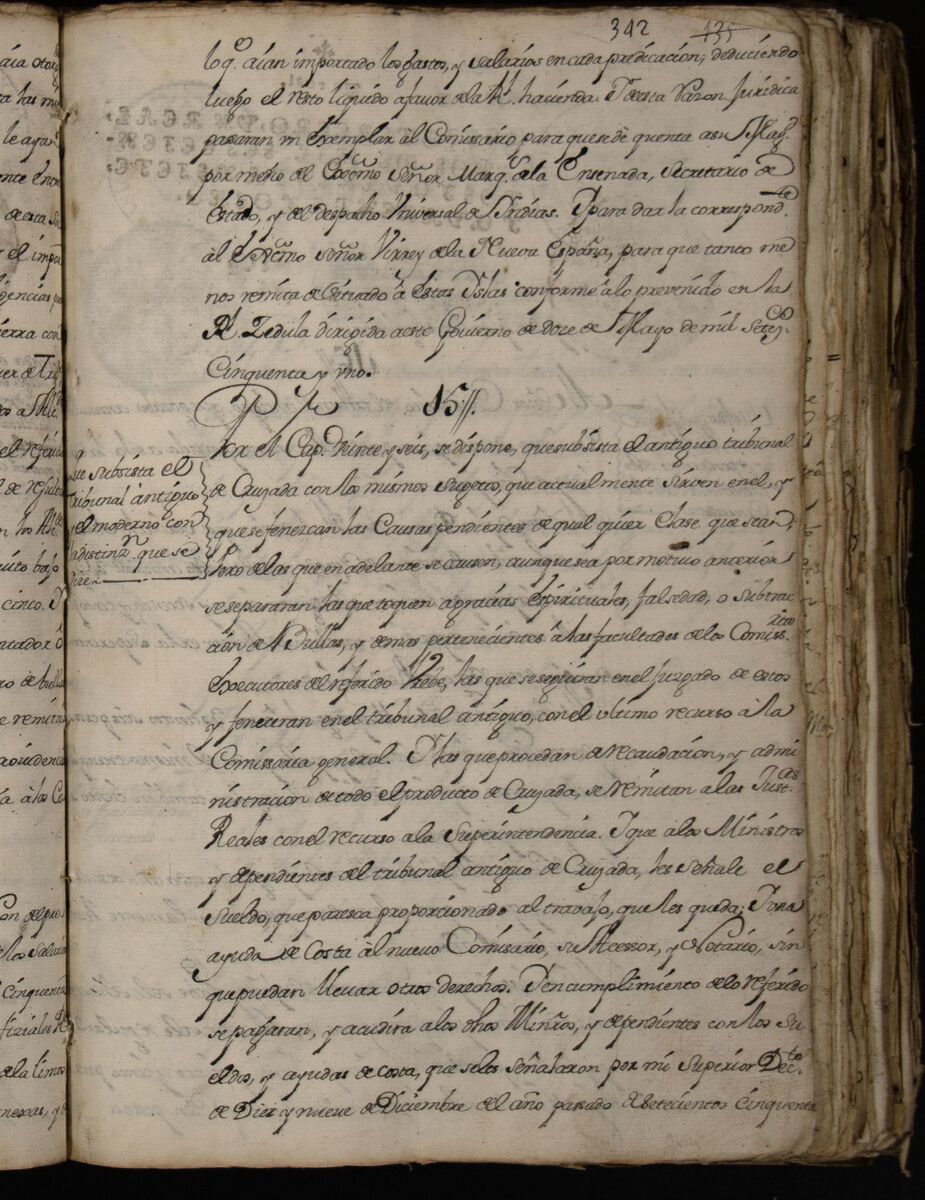 342 135
lo q. aian importado los gastos, y salários en cada predicación, deduciendo
luego el resto liquido a favor de la Rl. hacienda. Y desta Razon Juridica
pasaran un Exemplar al Comissário para que se dé quenta a su Mag.
por medio del Exc.mo Señor Marq.s de la Ensenada, Secretário de
Estado, y del despacho Universal de Indias. Y para dar la correspond.te
al Exc.mo Señor Virrey de la Nueva España, para que tanto me
nos remita de situado á estas Islas conforme á lo prevenido en la
Rl. Zedula dirigida a este Govierno de doze de Mayo de mil Setez.os
Cinquenta y uno.
15//.
Por el Cap. Veinte y seis, se dispone, que subsista el antiguo tribunal
de Cruzada con los mismos Sugetos, que actualmente sirven en el, y
que se fenezcan las Causas pendientes de qual quier Clase que sean,
Pero de las que en adelante se causen, aunque sea por motivo anteriór
se separaran las que toquen a gracias Espirituales, falsedad, o subtrac
ción de Bullas, y demas pertenecientes á las facultades de los Comiss.rios
Executores del referido Brebe, las que se seguiran en el Juzgado de estos
y feneceran en el tribunal antiguo, con el ultimo recurso á la
Comissária general. Y las que procedan de recaudación, y admi
nistracion de todo el producto de Cruzada, se remitan a las Just.as
Reales con el recurso a la Superintendencia. Y que á los Ministros
y dependientes del tribunal antiguo de Cruzada, les señale el
Sueldo, que paresca proporcionado al travajo, que les queda; Y una
ayuda de Costa al nuevo Comisario, su Acessor, y Notario, sin
que puedan llevar otros derechos. Y en cumplimiento de lo referido
se pagaran, y acudira a los dhos Minros, y dependientes con los Su
eldos, y ayudas de costa, que se les señalaron por mi Superior Dec.to
de Diez y nueve de Diciembre del año pasado de setecientos Cinquenta
Que subsista el
Tribunal antiguo
y el moderno con
la distinz.n que se
dize